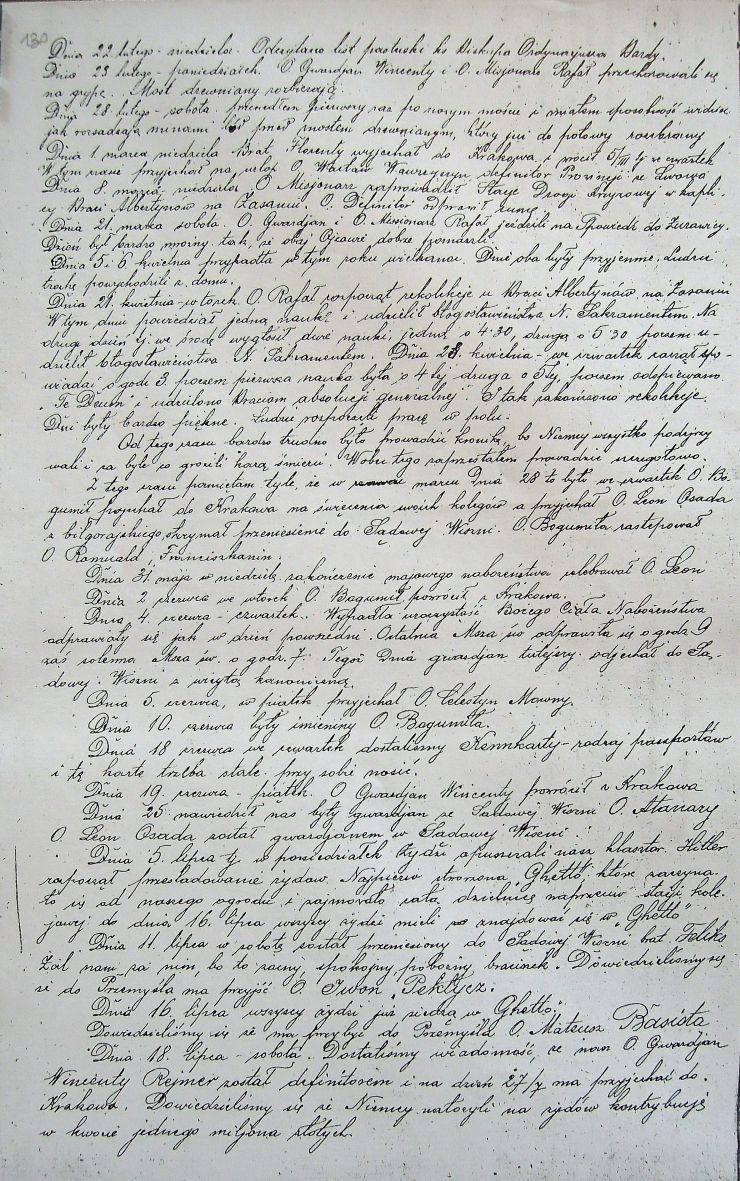 130
Dnia 22 lutego - niedziela. Odczytano list pasterski ks Biskupa Ordynarjusza Bardy.
Dnia 23 lutego - poniedziałek. O. Gwardjan Wincenty i O. Misjonarz Rafał przechorowali się
na grypę. Most drewniany rozbierają.
Dnia 28 lutego - sobota. przeszedłem pierwszy raz po nowym moście i miałem sposobność widzieć
jak rozsadzają minami lód przed mostem drewnianym, który już do połowy rozebrany
Dnia 1. marca niedziela Brat Florenty wyjechał do Krakowa i wrócił 5/III tj w czwartek
W tym czasie przyjechał na O. Wacław definitor Prowincji ze Lwowa
Dnia 8. marca, niedziela O Misjonarz zaprowadził Stacje Drogi Krzyżowej w kapli-
cy Braci Albertynów na Zasaniu, O. Definitor odprawił sumę.
Dnia 21. marka sobota. O. Gwardjan i O. Misjonarz Rafał jeździli na Spowiedź do Żurawicy.
Dzień był bardzo mroźny tak, że obaj Ojcowie dobrze zmarzli.
Dnia 5 i 6 kwietnia przypadła w tym roku wielkanoc. Dni oba były przyjemne. Ludzie
trochę powychodzili z domu.
Dnia 21. kwietnia - wtorek O. Rafał rozpoczął rekolekcje u Braci Albertynów na Zasaniu
W tym dniu powiedział jedną naukę i udzielił błogosławieństwa N. Sakramentem. Na
drugi dzień tj we środę wygłosił dwie nauki, jedną o 4.30, drugą o 5 30 poczem u-
dzielił błogosławieństwa N. Sakramentem. Dnia 23. kwietnia - we czwartek zaczął spo-
wiadać o godz 3. poczem pierwsza nauka była o 4 tej druga o 5 tej, poczem odśpiewano
"Te Deum" i udzielono Braciom absolucji generalnej. I tak zakończono rekolekcje.
Dni były bardzo piękne. Ludzie rozpoczęli pracę w polu.
Od tego czasu bardzo trudno było prowadzić kronikę, bo Niemcy wszystko podejrzy
wali i za byle co grozili karą śmierci. Wobec tego zaprzestałem prowadzić szczegółowo.
Z tego czasu pamiętam tyle, że w marcu Dnia 28 to było we czwartek O. Bo-
gumił pojechał do Krakowa na święcenia swoich kolegów a przyjechał O. Leon Osada
z biłgorajskiego, otrzymał przeniesienie do Sądowej Wiszni. O. Bogumiła zastępował
O Romuald, Franciszkanin.
Dnia 31. maja w niedzielę zakończenie majowego nabożeństwa celebrował O. Leon
Dnia 2. czerwca we wtorek O. Bogumił powrócił z Krakowa.
Dnia 4. czerwca - czwartek. Wypadła uroczystość Bożego Ciała Nabożeństwa
odprawiały się jak w dzień powszedni. Ostatnia Msza św odprawiła się o godz. 9
zaś solenna Msza św. o godz. 7. Tegoż Dnia gwardjan tutejszy odjechał do Są-
dowej Wiszni z wizytą kanoniczną.
Dnia 5. czerwca, w piątek przyjechał O. Celestyn Mowny.
Dnia 10. czerwca były imieniny O. Bogumiła.
Dnia 18 czerwca we czwartek dostaliśmy Kennkarty - rodzaj paszportów
i tę kartę trzeba stale przy sobie nosić.
Dnia 19. czerwca - piątek. O Gwardjan Wincenty powrócił z Krakowa
Dnia 25 nawiedził nas były gwardjan ze Sądowej Wiszni O. Atanazy
O Leon Osada został gwardjanem w Sądowej Wiszni.
Dnia 5. lipca tj w poniedziałek żydzi opuszczali nasz klasztor. Hitler
rozpoczął prześladowanie żydów. Najpierw utworzono "Ghetto", które zaczyna-
ło się od naszego ogrodu i zajmowało całą dzielnicę naprzeciw stacji kole-
jowej do dnia 16. lipca wszyscy żydzi mieli znajdować się w "Ghetto"
Dnia 11. lipca w sobotę został przeniesiony do Sądowej Wiszni brat Feliks
Żal nam za nim, bo to zacny, spokojny, pobożny braciszek. Dowiedzieliśmy się
że do Przemyśla ma przyjść O. Iwon Pekłycz.
Dnia 16. lipca wszyscy żydzi już siedzą w "Ghetto".
Dowiedzieliśmy się że ma przybyć do Przemyśla O. Mateusz Basista
Dnia 18. lipca - sobota. Dostaliśmy wiadomość, że nasz O. Gwardjan
Wincenty Rejmer został definitorem i na dzień 27/7 ma przyjechać do
Krakowa. Dowiedzieliśmy się że Niemcy nałożyli na żydów kontrybucję
w kwocie jednego miljona złotych.